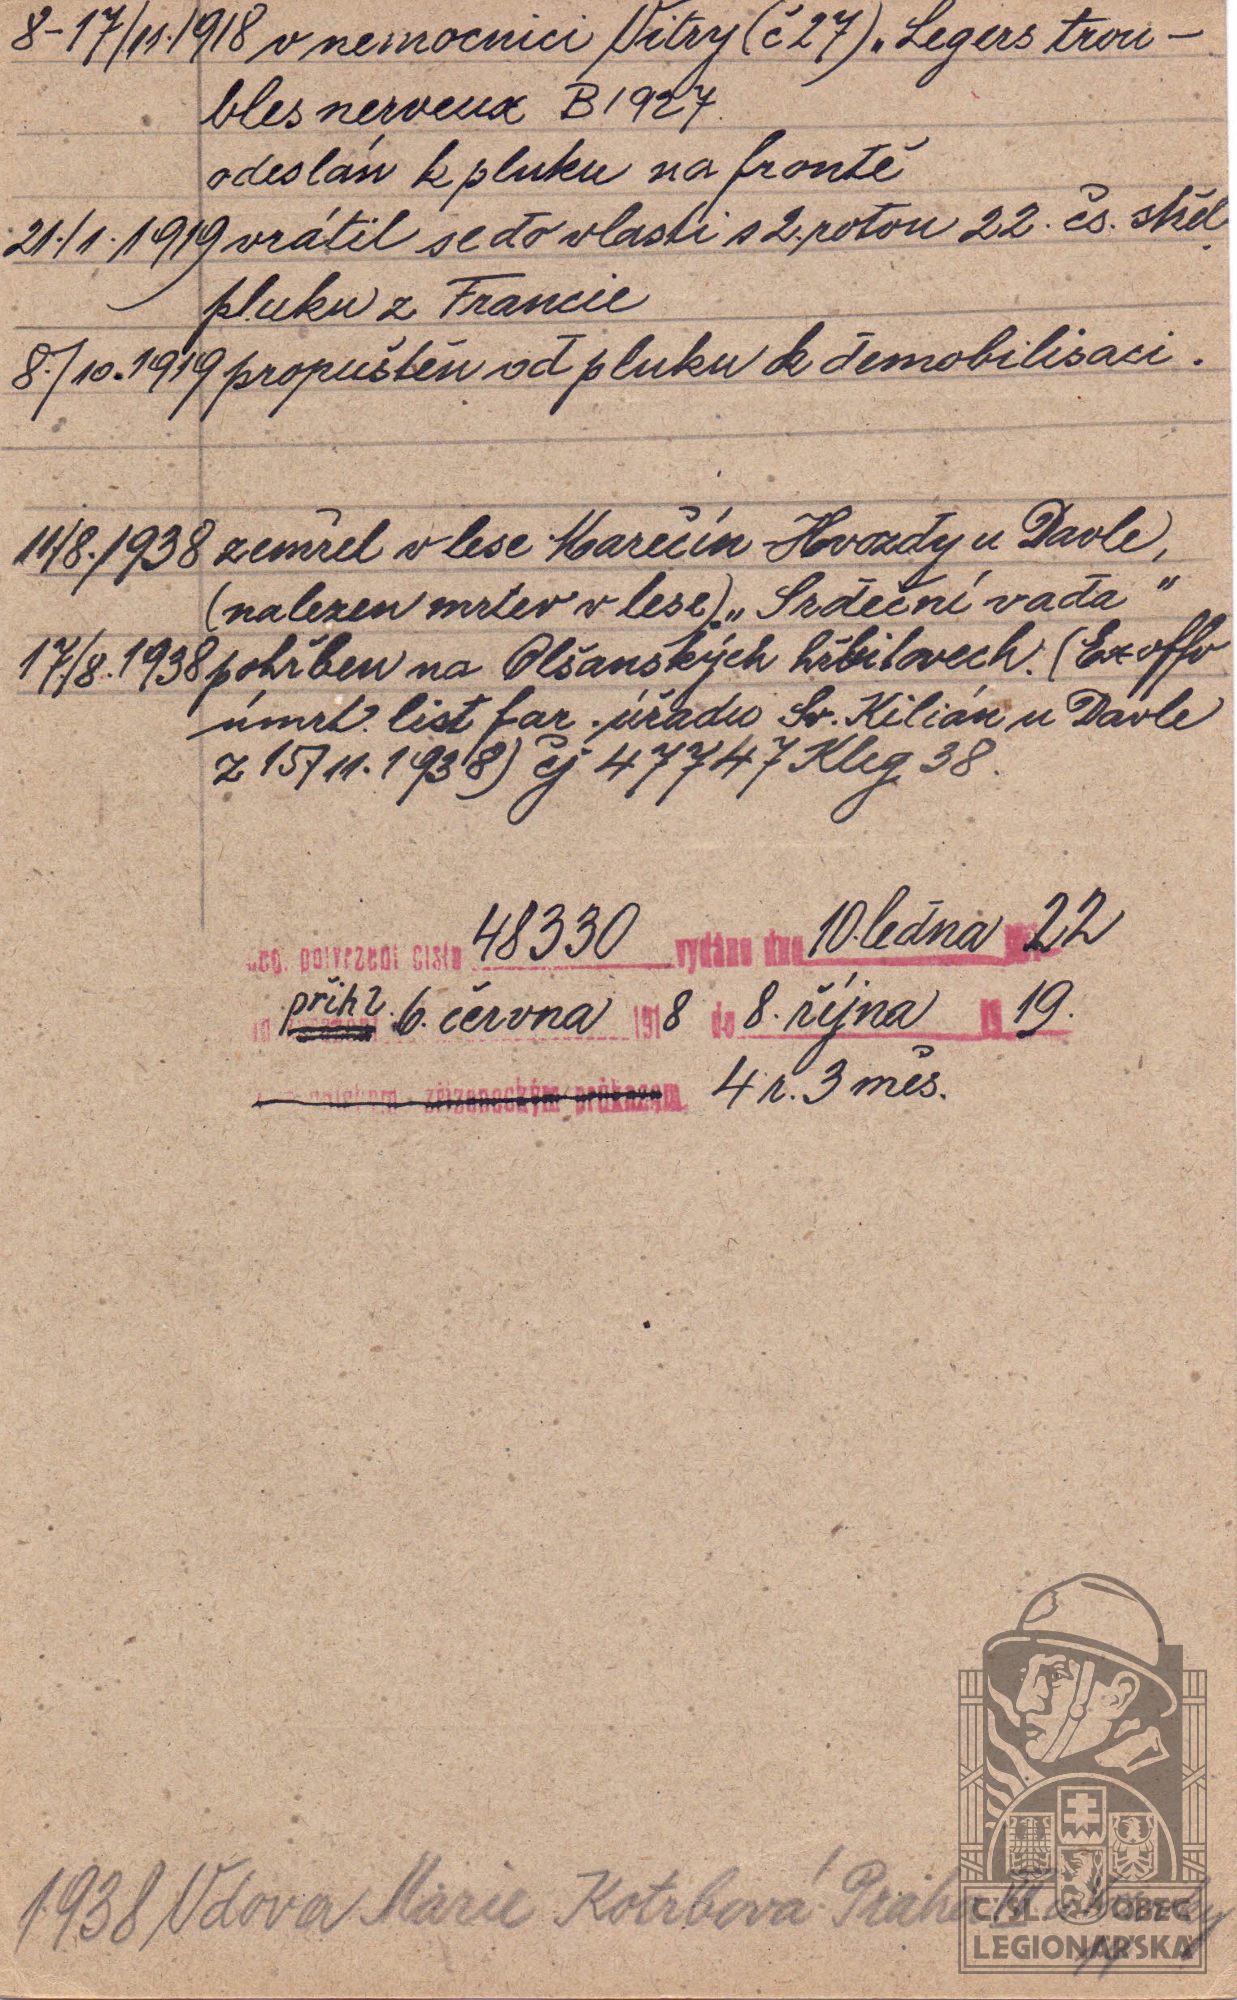 8-17/11.1918 v nemocnici Vitry (č 27) „Legers trou-
bles nerveux B1927.
odeslán k pluku na frontě
21./1.1919 vrátil se do vlasti s 2. rotou 22. čs. střel.
pluku z Francie
8./10.1919 propuštěn od pluku k demobilisaci.
11/8.1938 zemřel v lese Marečín-Hvozdy u Davle,
(nalezen mrtev v lese) „Srdeční vada"
17/8.1938 pohřben na Olšanských hřbitovech. (Ex offo
úmrt. list far. úřadu Sv. Kilián u Davle
z 15/11.1938) čj 47747 Kleg 38.
Leg. potvrzení čísla 48330 vydáno dne 10. ledna 22
přihl. 6. června 1918 do 8. října 19 19.
zřízeneckým průkazem 4 r. 3 měs.
1938 Vdova Marie Kotrbová Praha
Č/SL. OBEC
LEGIONÁŘSKÁ